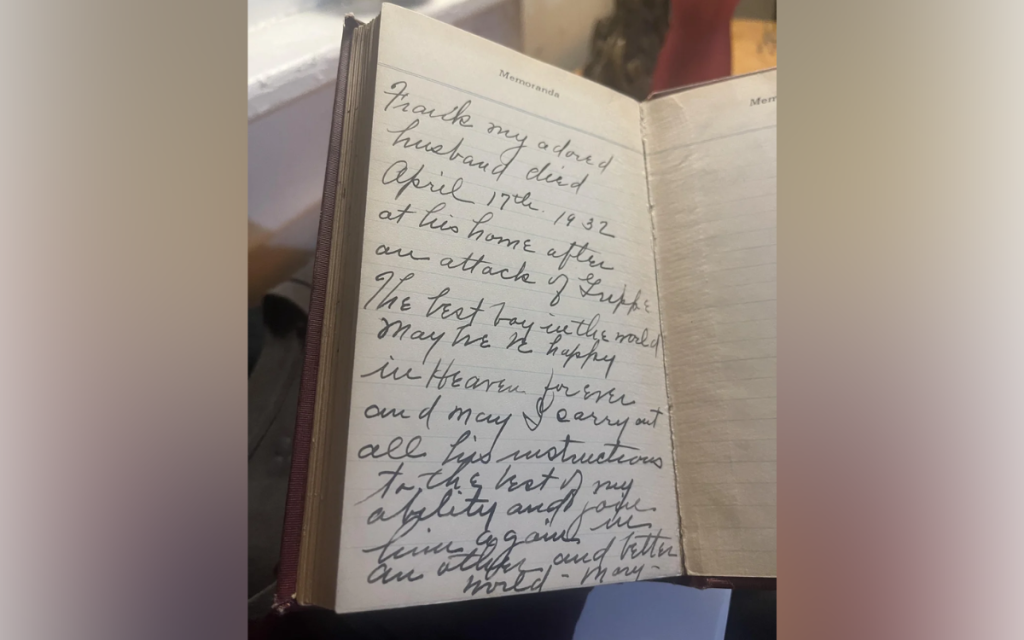 Memoranda
Mem
Frank my adored
husband died
April 17th. 1932
at his home after
an attack of Grippe
The best boy in the world
May he be happy
in Heaven forever
and may I carry out
all his instructions
to the best of my
ability and join
him again in
an other and better
world - Mary -